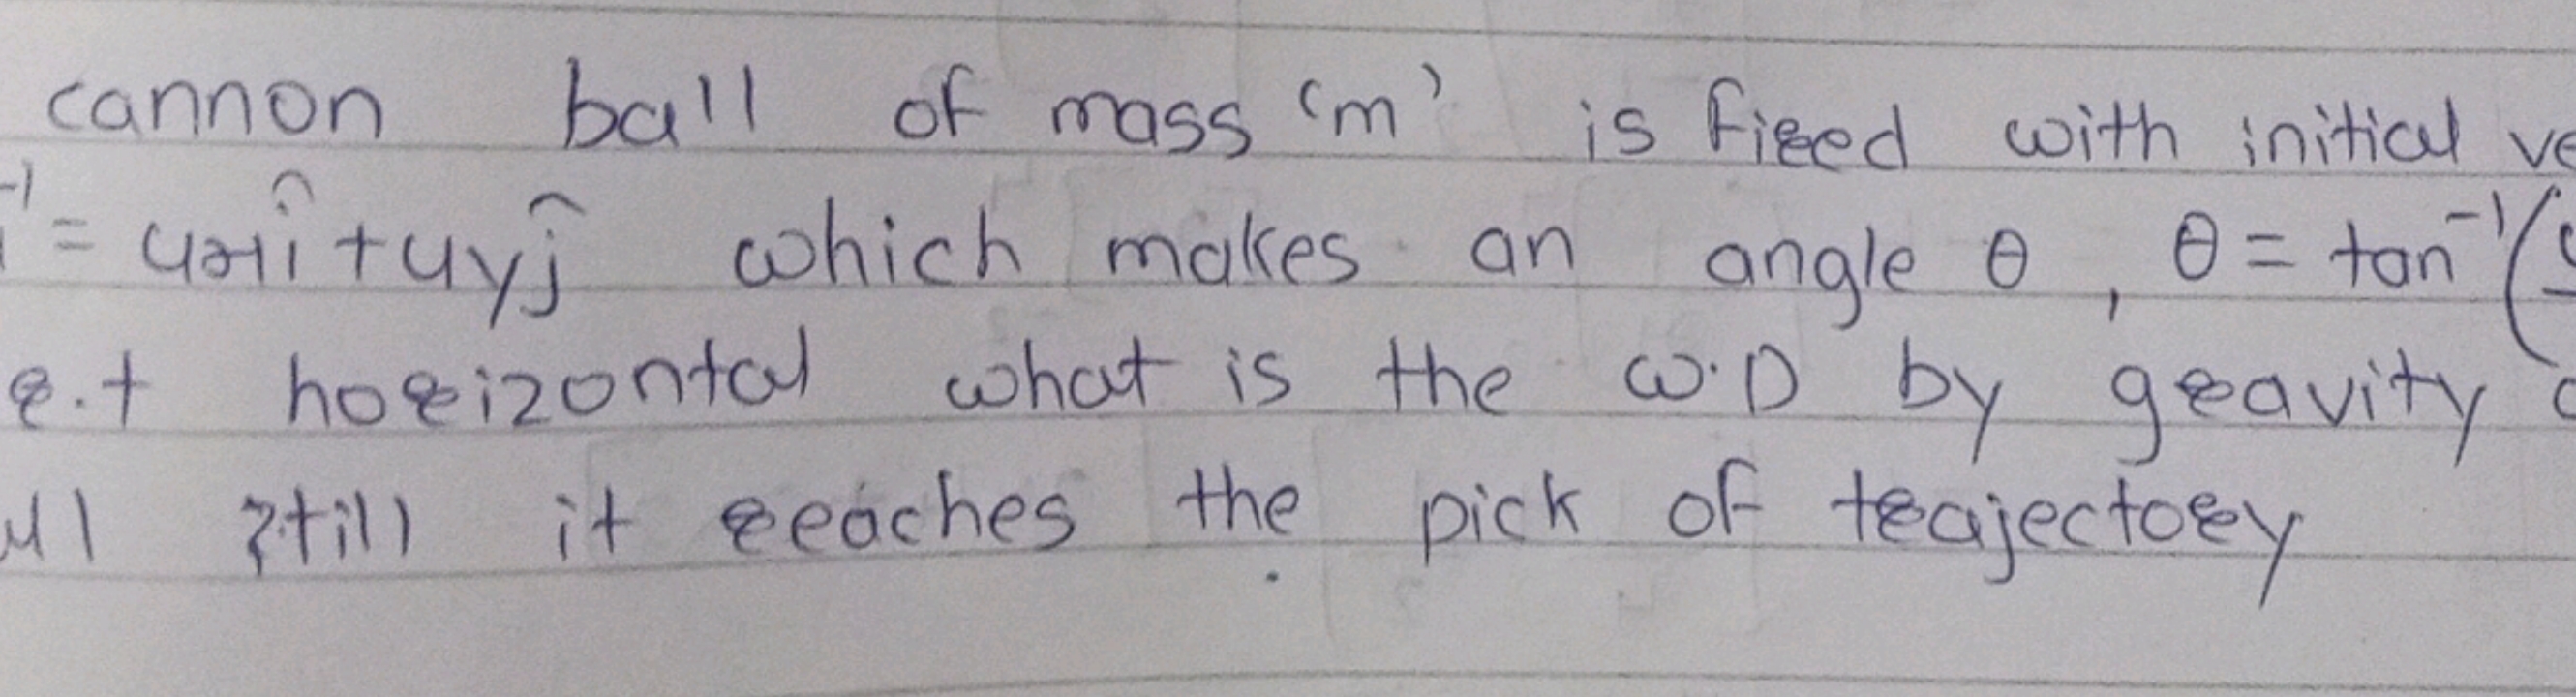 cannon ball of mass 'm' is fired with initial ve
= uxî + uyĵ which makes an angle θ, θ = tan⁻¹(
r.t horizontal what is the w.D by gravity
till it reaches the pick of trajectory